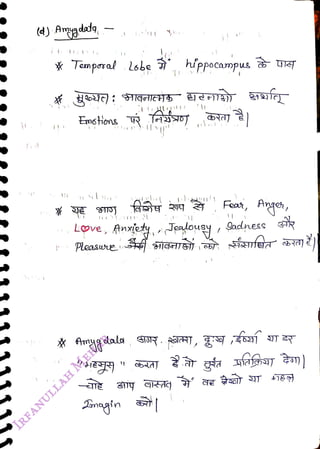 (d) Amygdala, —
* Temporal Lobe में hippocampus के पास
* मुख्यत: भावनात्मक घटनाओ अर्थात्
Emotions पर नियंत्रण करता है।
* यह भाग विशेष रूप से Fear, Anger,
Love, Anxiety, Jealousy, Sadness और
Pleasure जैसी भावनाओं को संसाधित करता है।
* Amygdala अगर खतरा, दुःख, ईर्ष्या या डर
"महसूस" करता है तो तुरंत प्रतिक्रिया देगा।
चाहे आप वास्तव में वह देखो या महज
Imagin करो।
IRFANULLAH